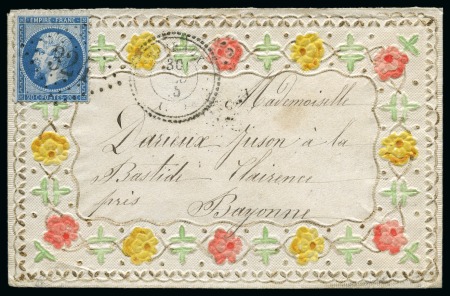 EMPIRE FRANC
20 C POSTES 20 C
30
5
Mademoiselle
Darieux Juson à la
Bastide Clairence
près
Bayonne